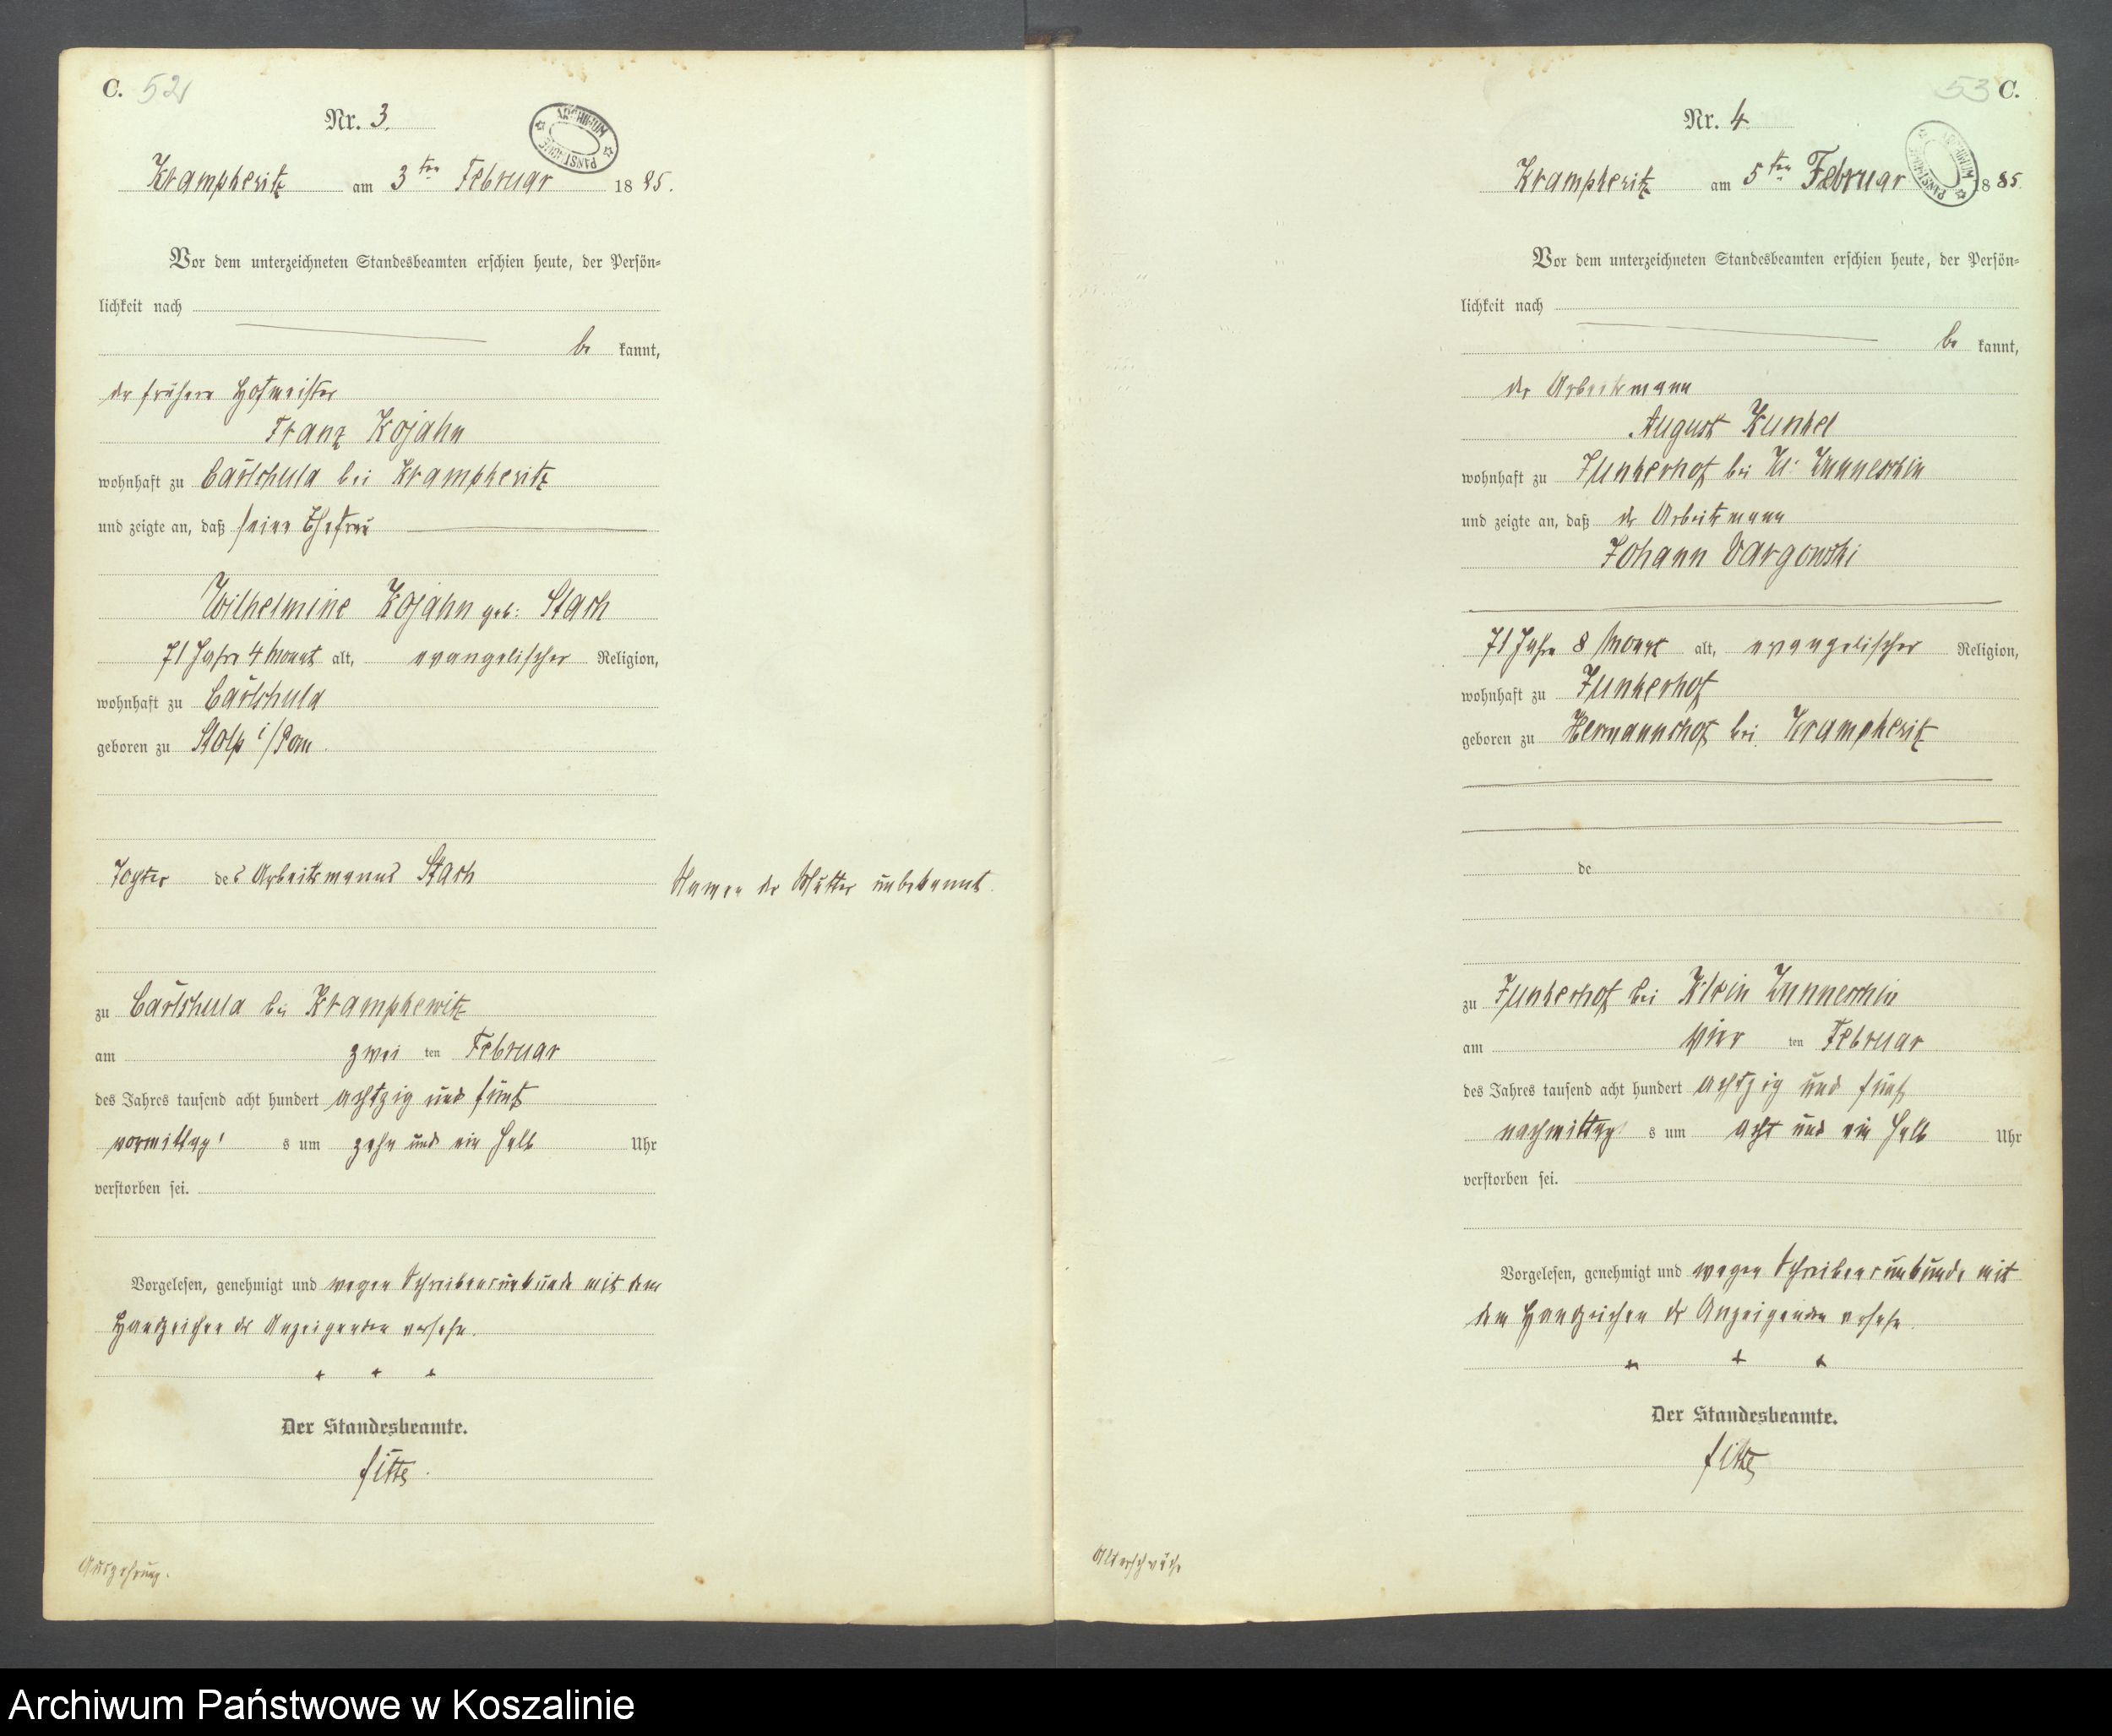 C. 52
Nr. 3.
ARCHIWUM PAŃSTWOWE
Krampkewitz am 3ten Februar 1885.
Vor dem unterzeichneten Standesbeamten erschien heute, der Persön-
lichkeit nach
be kannt,
der frühere Hofmeister
Franz Kojahn
wohnhaft zu Carlshula bei Krampkewitz
und zeigte an, daß seine Ehefrau
Wilhelmine Kojahn geb: Stach
71 Jahre 4 Monat alt, evangelischer Religion,
wohnhaft zu Carlshula
geboren zu Stolp i/Pom.
Tochter des Arbeitsmanns Stach
Namen der Mutter unbekannt.
zu Carlshula bei Krampkewitz
am zwei ten Februar
des Jahres tausend acht hundert achtzig und fünf
vormittag s um zehn und ein halb Uhr
verstorben sei.
Vorgelesen, genehmigt und wegen Schreibensunkunde mit dem
Handzeichen des Anzeigenden versehn.
+ + +
Der Standesbeamte.
Auszehrung.
53 C.
Nr. 4
ARCHIWUM PAŃSTWOWE
Krampkewitz am 5ten Februar 1885
Vor dem unterzeichneten Standesbeamten erschien heute, der Persön-
lichkeit nach
be kannt,
der Arbeitsmann
August Kunkel
wohnhaft zu Junkerhof bei Kl: Lunneskin
und zeigte an, daß der Arbeitsmann
Johann Dargowski
71 Jahre 8 Monat alt, evangelischer Religion,
wohnhaft zu Junkerhof
geboren zu Hermannshof bei Krampkewitz
de
zu Junkerhof bei Klein
am vier ten Februar
des Jahres tausend acht hundert achtzig und fünf
nachmittag s um acht und ein halb Uhr
verstorben sei.
Vorgelesen, genehmigt und wegen Schreibensunkunde mit
dem Handzeichen des Anzeigenden versehn.
+ + +
Der Standesbeamte.
Altersschwäche
Archiwum Państwowe w Koszalinie